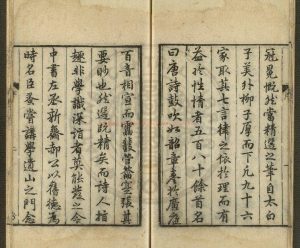 冠冕慨然當精選之筆自太白
子美外柳子厚而下凡九十六
家取其七言律之依於理而有
益於性情者五百八十餘首名
曰唐詩鼓吹如韶章奏於廣庭
百音相宣而雷鼓管籥實張其
要眇也然選既精矣而詩人指
趣非學識深詣者莫能發之今
中書左丞新齋郝公以舊德為
時名臣蚤嘗講學遺山之門念